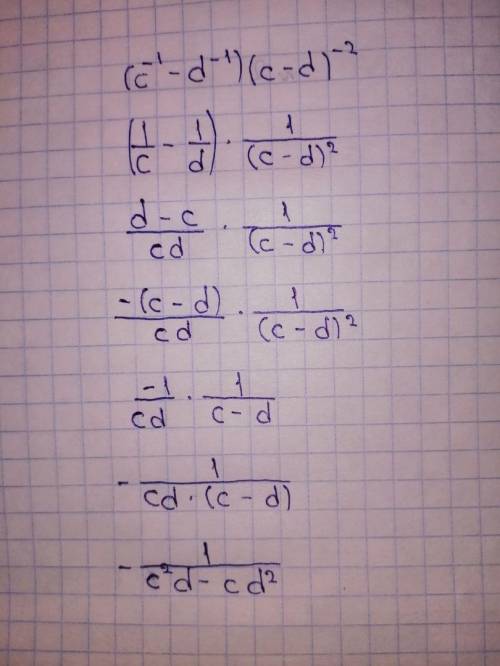 (c⁻¹ - d⁻¹)(c - d)⁻²
(1/c - 1/d) · 1/(c - d)²
(d - c)/cd · 1/(c - d)²
-(c - d)/cd · 1/(c - d)²
-1/cd · 1/(c - d)
- 1/(cd · (c - d))
- 1/(c²d - cd²)